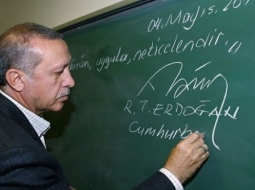 04 Mayıs. 20
uygula, neticelendir."
R. T. ERDOĞAN
Cumhurba